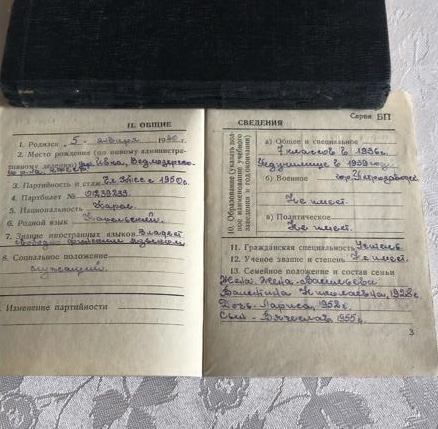 II. ОБЩИЕ
1. Родился 5 января 19
2. Место рождения (по новому администра-
тивному делению)
3. Партийность и стаж Чл. КПСС с 1950г.
4. Партбилет №
5. Национальность Карел
6. Родной язык Карельский
7. Знание иностранных языков Владеет
свободно финским языком
8. Социальное положение
служащий
9. Изменение партийности
СВЕДЕНИЯ
Серия БП
10. Образование (указать пол-
ное наименование учебного
заведения и год окончания)
а) Общее и специальное
7 классов в 1936г.
Педучилище в 1939 году.
б) Военное гор. Петрозаводск
Не имеет.
в) Политическое
Не имеет.
11. Гражданская специальность Учитель
12. Ученое звание и степень Не имеет.
13. Семейное положение и состав семьи
Жена
Валентина Николаевна, 1928г.
Дочь - Лариса, 1952г.
Сын - Вячеслав 1955г.
3